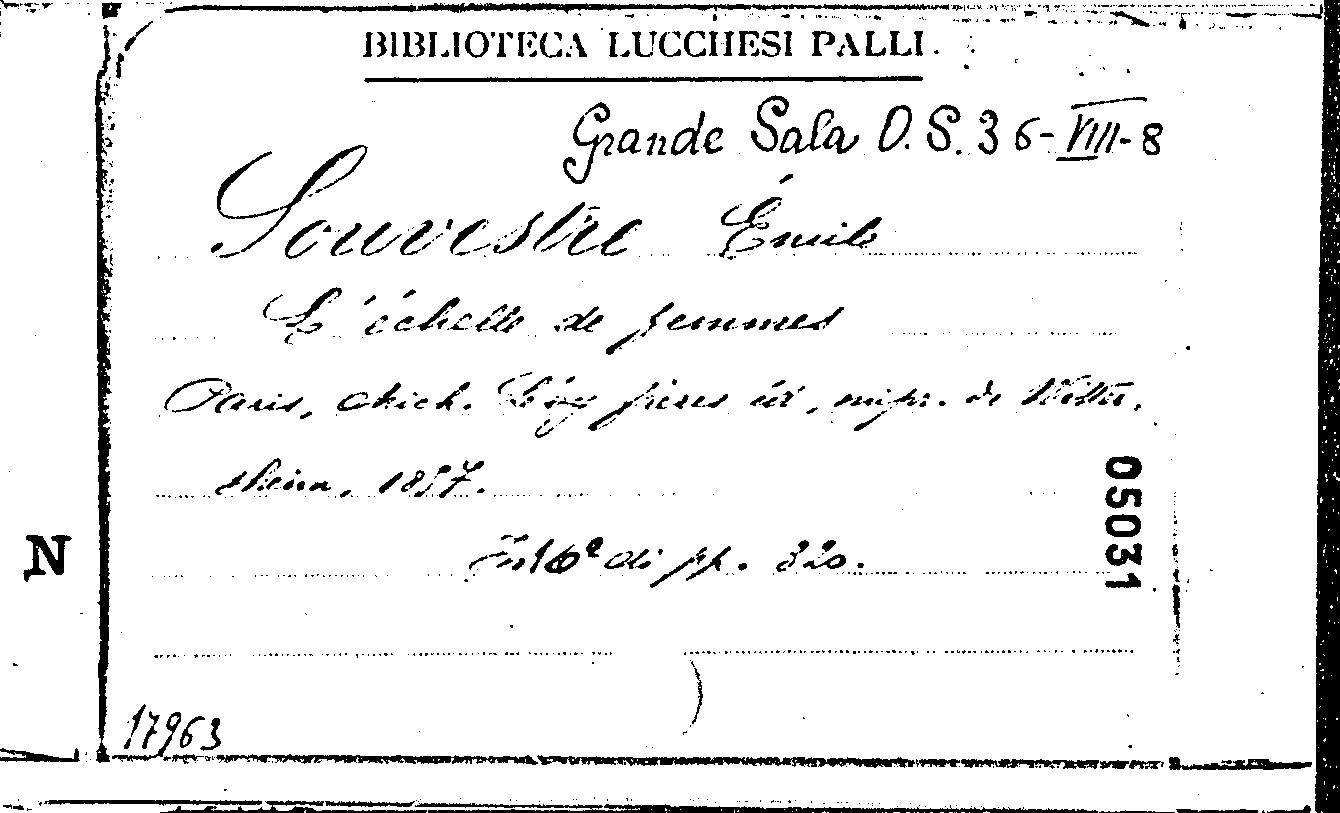 BIBLIOTECA LUCCHESI PALLI.
Grande Sala O. S. 36-VIII-8
Souvestre Émile
L'échelle de femmes
Paris, Mich. Lévy frères éd., impr. de
1857.
In 16º di pp. 320.
05031
N
17963